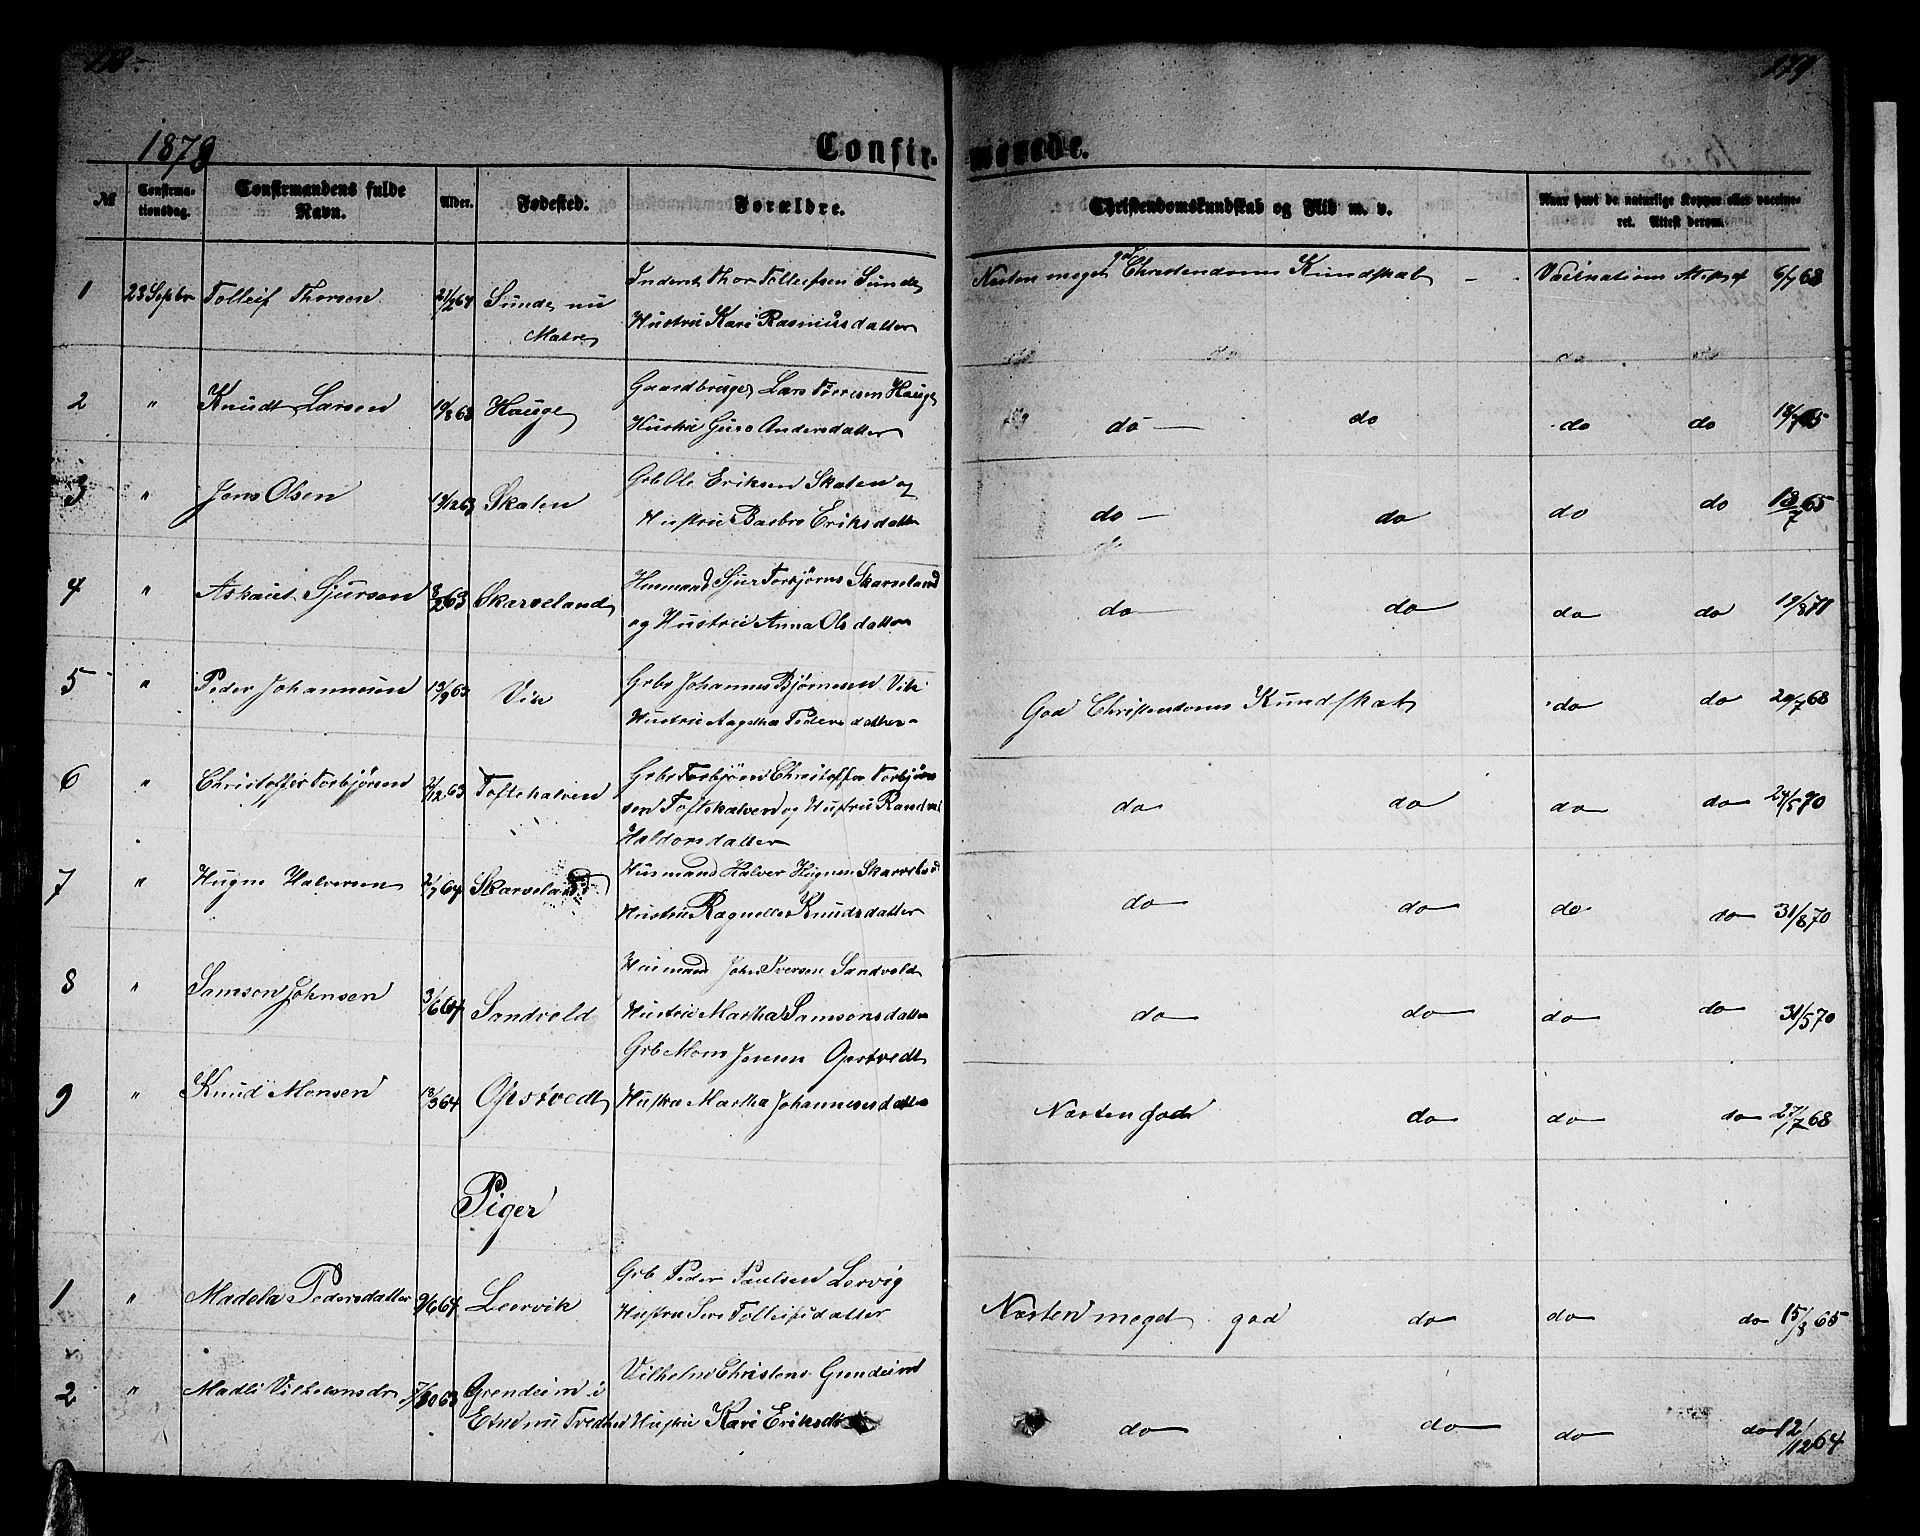 179
1879
Confir-
merede.
№
Confirma-
tionsdag.
Confirmandens fulde
Navn.
Alder.
Fødested.
Forældre.
Christendomskundskab og Flid m. v.
Naar havt de naturlige Kopper eller vaccine-
ret. Attest derom.
1 23 Septbr Tolleif Thorsen 64 Sunde nu
Matre
Inderst Thor Tolleifsen Sunde
Hustru Kari Rasmusdatter
Næsten meget god Christendoms Kundskab
Vaccinations Attest 6/7 68
2 " Knudt Larsen 19/8 63 Hauge
Gaardbruger Lars Hauge
Hustru Guro Andersdatter
do do do do 18/7 65
3 " Jens Olsen 19/12 63 Skalen
Grb Ole Eriksen Skalen og
Hustru Barbro Eriksdatter
do do do do 18/7 65
4 " Sjursen 8/2 63 Skarveland
Husmand Sjur Torbjørns Skarveland
og Hustru Anna Olsdatter
do do do do 19/8 70
5 " Peder Johannesen 13/9 63 Vik
Grbr Johannes Bjørnesen Vik
Hustru Aagetha Pedersdatter
God Christendoms Kundskab do do 29/7 68
6 " Christoffer Torbjørnsen 2/12 63 Toftekalven
Grbr Torbjørn Christoffer Torbjørn
sen Toftekalven og Hustru Randvei
Haldorsdatter
do do do do 24/5 70
7 " Hugne Halversen 2/7 64 Skarveland
Husmand Halver Hugnen Skarveland
Hustru Knudsdatter
do do do do 31/8 70
8 " Samson Johnsen 3/6 64 Sandvold
Husmand John Iversen Sandvold
Hustru Martha Samsonsdatter
do do do do 31/5 70
9 " Knud Monsen 18/3 64 Opstvedt
Grb Mons Jensen Opstvedt
Hustru Martha Johannesdatter
Næsten god do do do 27/7 68
Piger
1 " Madela Pedersdatter 9/6 64 Leervik
Grb Peder Paulsen Lervig
Hustru Tolleifsdatter
Næsten meget god do do do 15/8 65
2 " Madli Vilhelmsdr 7/10 63 Grendeim i
Etne nu
Vilhelm Christens Grendeim
Hustru Kari Eriksdt
do do do do 12/12 64